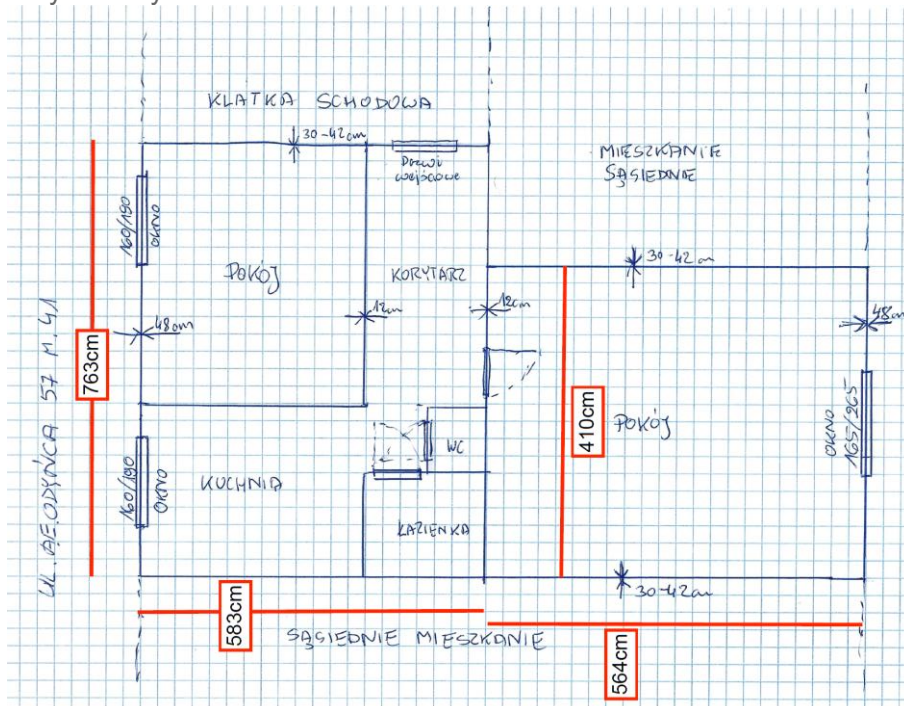 KLATKA SCHODOWA
30-42cm
Drzwi
wejściowe
MIESZKANIE
SĄSIEDNIE
160/190
OKNO
POKÓJ
KORYTARZ
30-42cm
48cm
12cm
12cm
48cm
763cm
UL. A.E. ODYŃCA 57 M. 41
410cm
POKÓJ
OKNO
165/265
WC
160/190
OKNO
KUCHNIA
ŁAZIENKA
30-42cm
583cm
SĄSIEDNIE MIESZKANIE
564cm